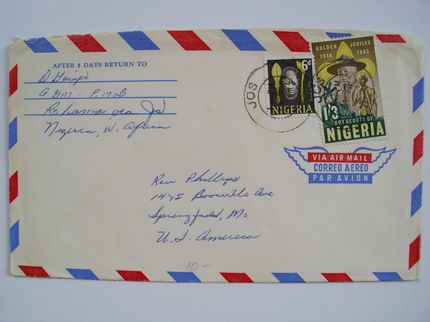 AFTER 5 DAYS RETURN TO
Nigeria, W. Africa
JOS
6d
NIGERIA
GOLDEN JUBILEE
1915 1965
1'3
BOY SCOUTS OF
NIGERIA
VIA AIR MAIL
CORREO AEREO
PAR AVION
Rev Phillips
1445 Boonville Ave
Springfield, Mo
U.S. America
10-